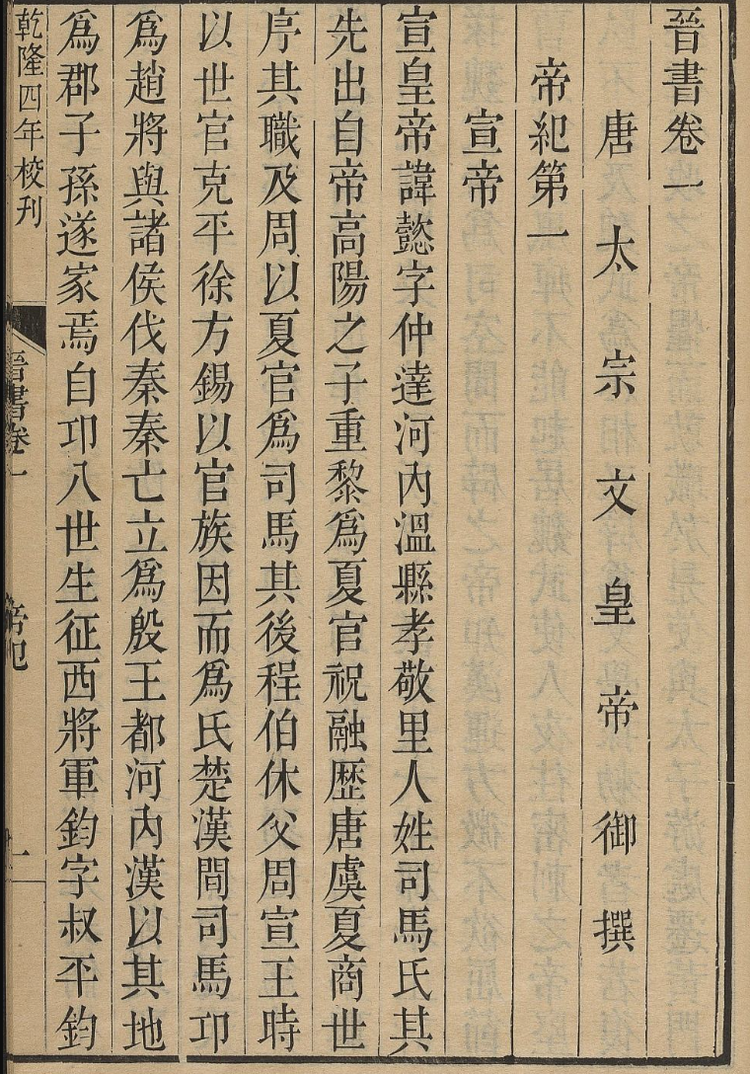 晉書卷一
唐太宗文皇帝御撰
帝紀第一
宣帝
宣皇帝諱懿字仲達河內溫縣孝敬里人姓司馬氏其
先出自帝高陽之子重黎爲夏官祝融歷唐虞夏商世
序其職及周以夏官爲司馬其後程伯休父周宣王時
以世官克平徐方錫以官族因而爲氏楚漢間司馬卭
爲趙將與諸侯伐秦秦亡立爲殷王都河內漢以其地
爲郡子孫遂家焉自卭八世生征西將軍鈞字叔平鈞
乾隆四年校刊
晉書卷一
帝紀
一